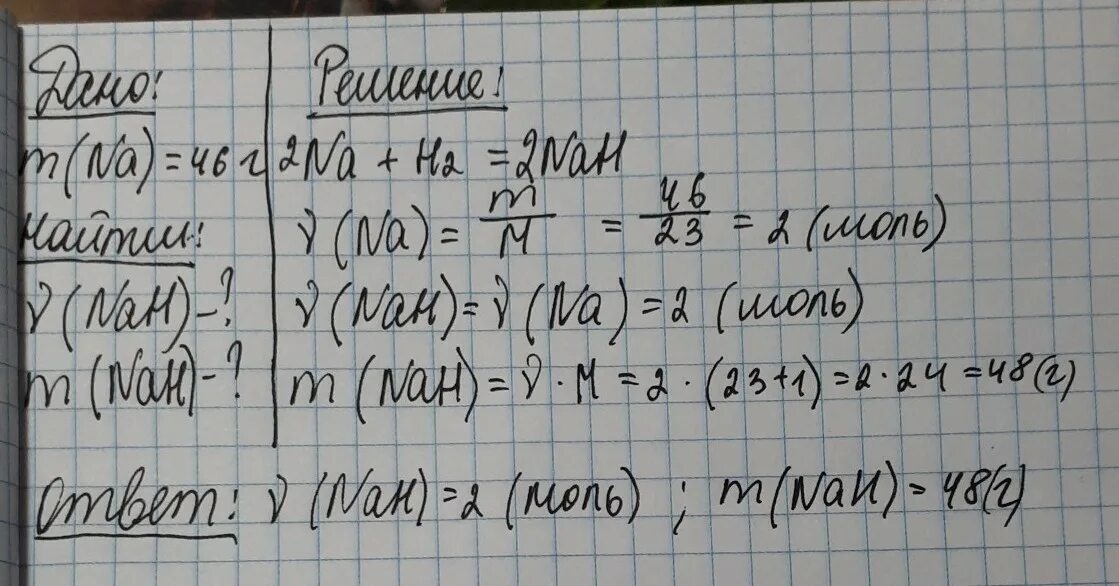 Дано:
m(Na)=46 г
Найти:
ν(NaH)-?
m(NaH)-?
Решение:
2Na + H2 = 2NaH
ν(Na)= m/M = 46/23 = 2 (моль)
ν(NaH)=ν(Na)=2 (моль)
m(NaH)=ν·M=2·(23+1)=2·24=48(г)
Ответ: ν(NaH)=2 (моль); m(NaH)=48(г)